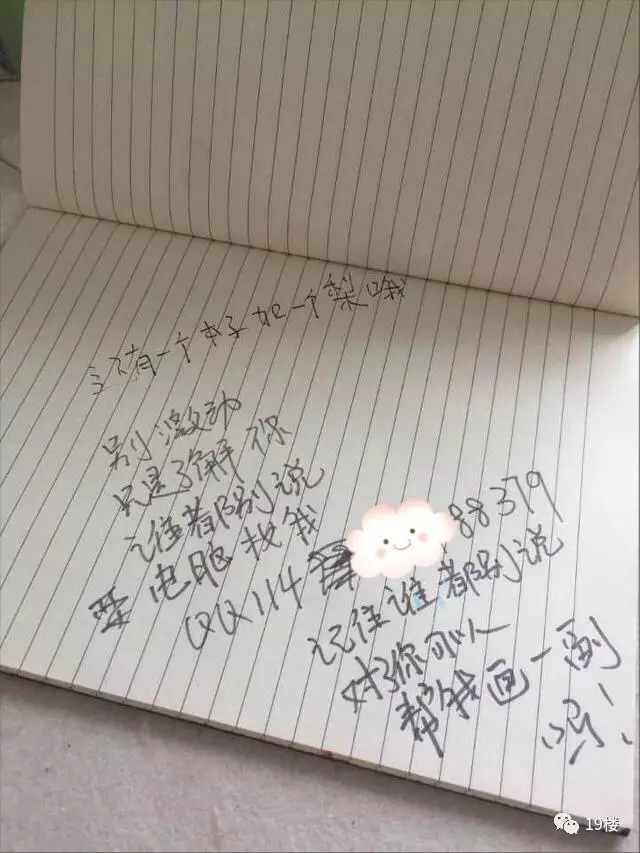 还有一个本子加一个梨哦
别激动
只是了解你
谁都别说
电脑找我
QQ114 88379
记住谁都别说
对了你可以
帮我画一副
吗！
19楼